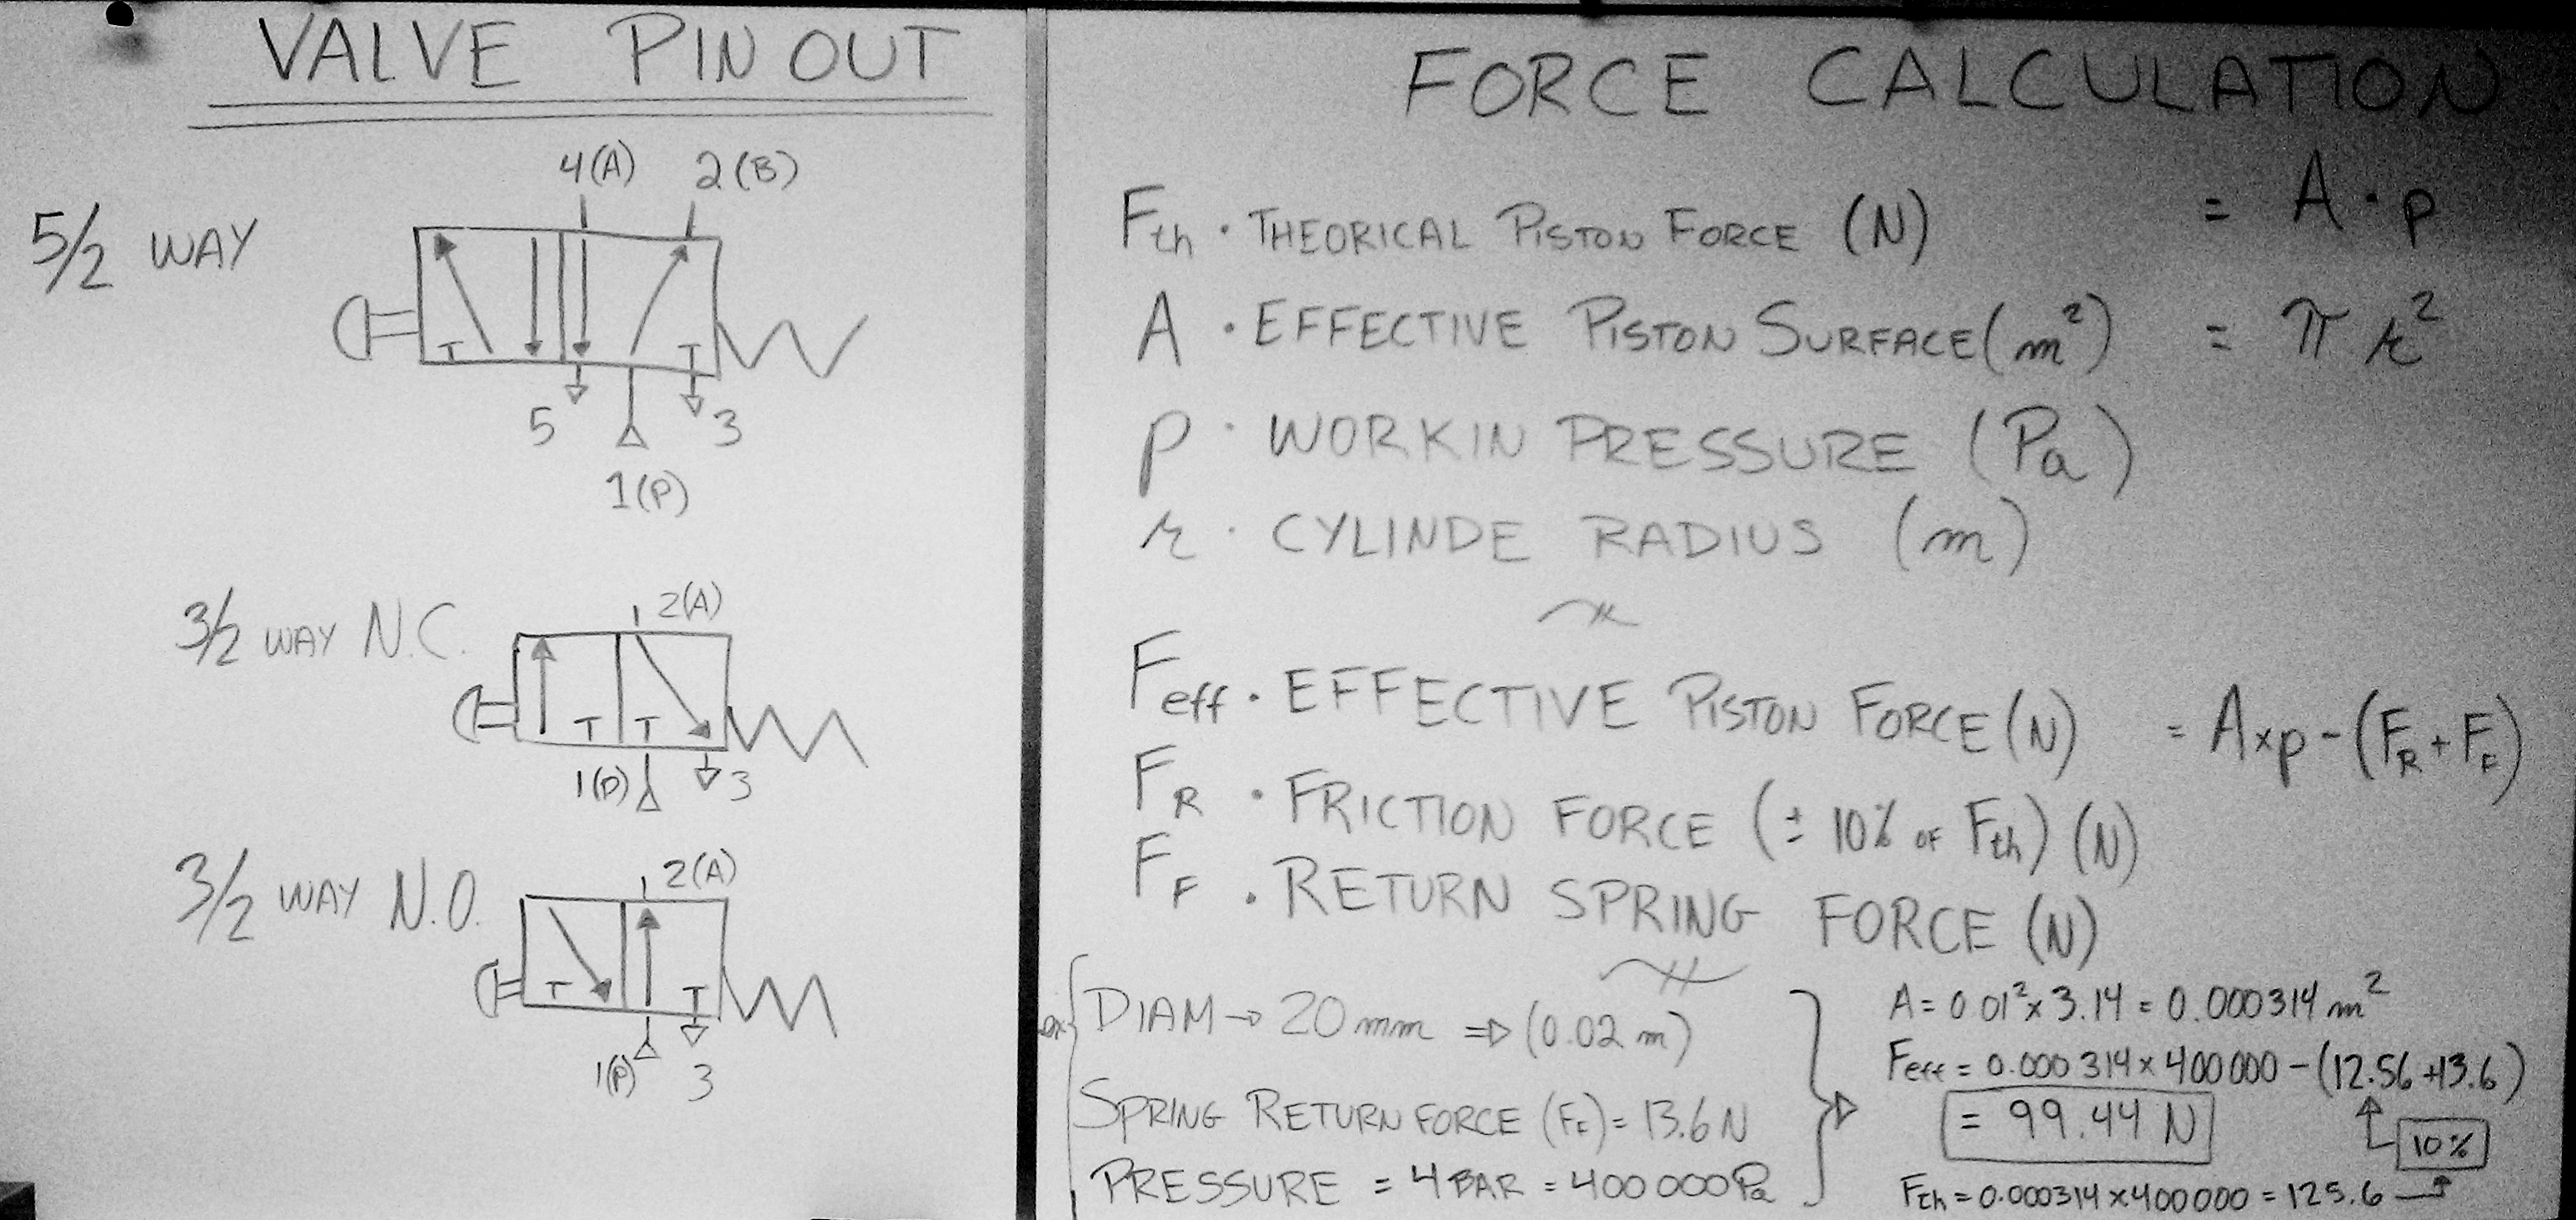 VALVE PIN OUT
5/2 WAY
4(A) 2(B)
5 3
1(P)
3/2 WAY N.C.
2(A)
1(P) 3
3/2 WAY N.O.
2(A)
1(P) 3
FORCE CALCULATION
Fth · THEORICAL PISTON FORCE (N) = A · p
A · EFFECTIVE PISTON SURFACE (m²) = π r²
p · WORKIN PRESSURE (Pa)
r · CYLINDE RADIUS (m)
Feff · EFFECTIVE PISTON FORCE (N) = A×p-(FR+FF)
FR · FRICTION FORCE (± 10% OF Fth) (N)
FF · RETURN SPRING FORCE (N)
ex:
DIAM → 20 mm ⇒ (0.02 m)
SPRING RETURN FORCE (FF) = 13.6 N
PRESSURE = 4 BAR = 400 000 Pa
A = 0.01² x 3.14 = 0.000314 m²
Feff = 0.000314 x 400 000 - (12.56 + 13.6)
= 99.44 N
10%
Fth = 0.000314 x 400000 = 125.6